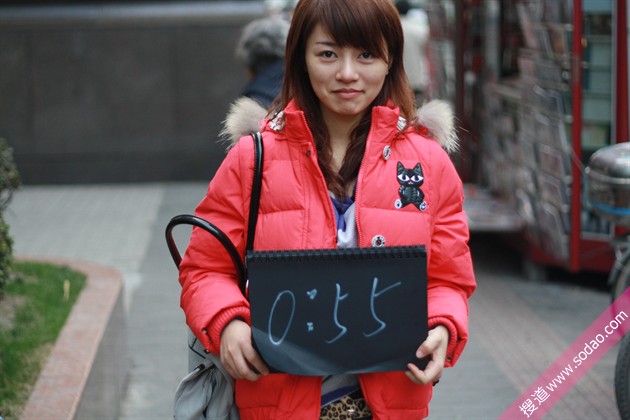 0:55
搜道www.sodao.com